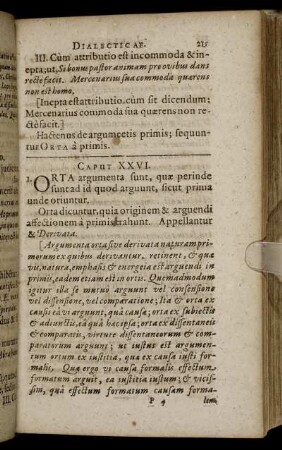 DIALECTICAE. 215
III. Cùm attributio est incommoda & in-
epta, ut, Si bonus pastor animam pro ovibus dans
recte facit. Mercenarius sua commoda quærens
non est homo.
[Inepta est attributio. cùm sit dicendum:
Mercenarius commoda sua quærens non re-
ctè facit.]
Hactenus de argumentis primis; sequun-
tur ORTA à primis.
CAPUT XXVI.
1. ORTA argumenta sunt, quæ perinde
sunt ad id quod arguunt, sicut prima
unde oriuntur.
Orta dicuntur, quia originem & arguendi
affectionem à primis trahunt. Appellantur
& Derivata.
[Argumenta orta sive derivata naturam pri-
morum ex quibus derivantur, retinent, & quæ
vis, natura, emphasis & energeia est arguendi in
primis, eadem etiam est in ortis. Quemadmodum
igitur illa se mutuò arguunt vel consensione
vel dissensione, vel comparatione; Ita & orta ex
causis eà vi arguunt, quâ causa; orta ex subjectis
& adjunctis, eâ quâ hæc ipsa; orta ex dissentaneis
& comparatis, virtute dissentaneorum & com-
paratorum arguunt; ut iustus est argumen-
tum ortum ex iustitia, quæ ex causa iusti for-
malis. Quæ ergo vi causa formalis effectum
formatum arguit, ea iustitia iustum; & vicis-
sim, quâ effectum formatum causam forma-
P 4 lem